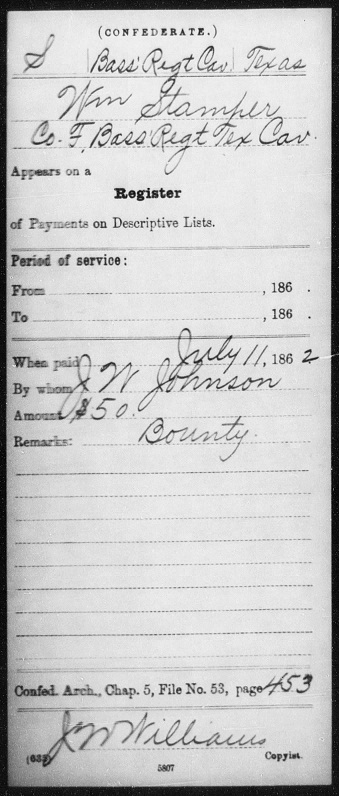 (CONFEDERATE.)
S | Bass' Regt Cav | Texas
Wm Stamper
Co. F, Bass' Regt Tex Cav.
Appears on a
Register
of Payments on Descriptive Lists.
Period of service:
From , 186 .
To , 186 .
When paid July 11, 1862
By whom J W Johnson
Amount $50.
Remarks: Bounty.
Confed. Arch., Chap. 5, File No. 53, page 453
J W Williams
(635) Copyist.
5807